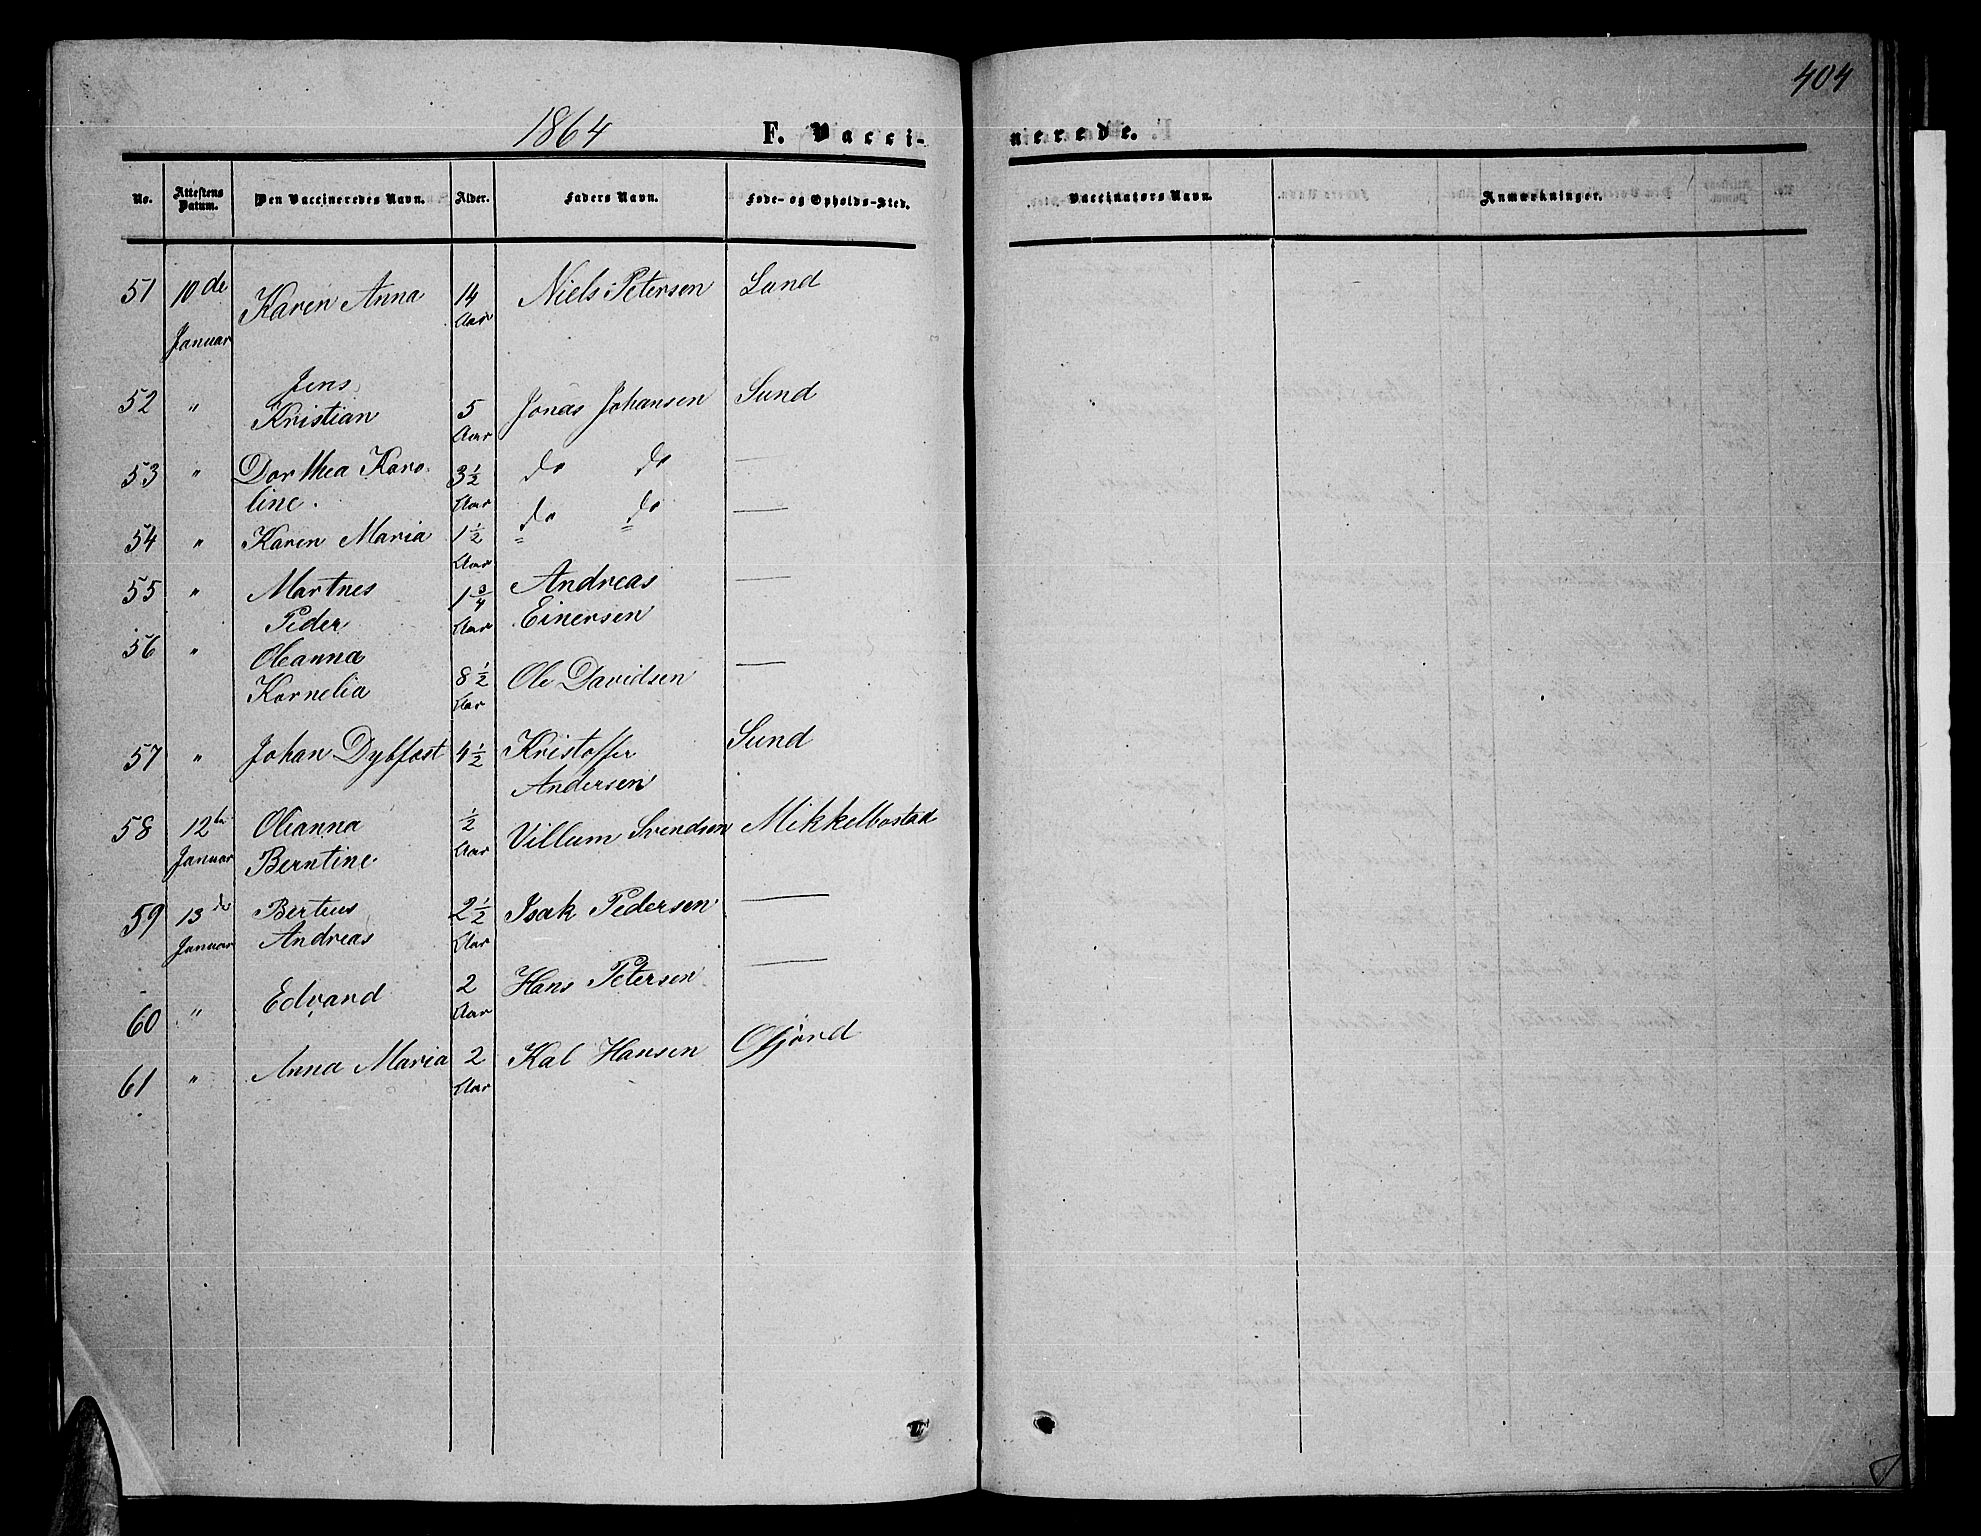 404
1864 F. Vacci- nerede.
No. Attestens Datum. Den Vaccineredes Navn. Alder. Faders Navn. Føde- og Opholds-Sted. Vaccinators Navn. Anmærkninger.
51 10de Januar Karen Anna 14 Aar Niels Petersen Sund
52 " Jens Kristian 5 Aar Jonas Johansen Sund
53 " Dorthea Karoline. 3 1/2 Aar do do —
54 " Karen Maria 1 1/2 Aar do do —
55 " Martnes Peder 1 3/4 Aar Andreas Einersen —
56 " Oleanna Kornelia 8 1/2 Aar Ole Davidsen —
57 " Johan Dybfest 4 1/2 Kristoffer Andersen Sund
58 12te Januar Oleanna Berntine 1/2 Aar Villum Svendsen Mikkelbostad
59 13de Januar Berteus Andreas 2 1/2 Aar Isak Pedersen —
60 " Edvard 2 Aar Hans Petersen —
61 " Anna Maria 2 Aar Kal Hansen Ofjord